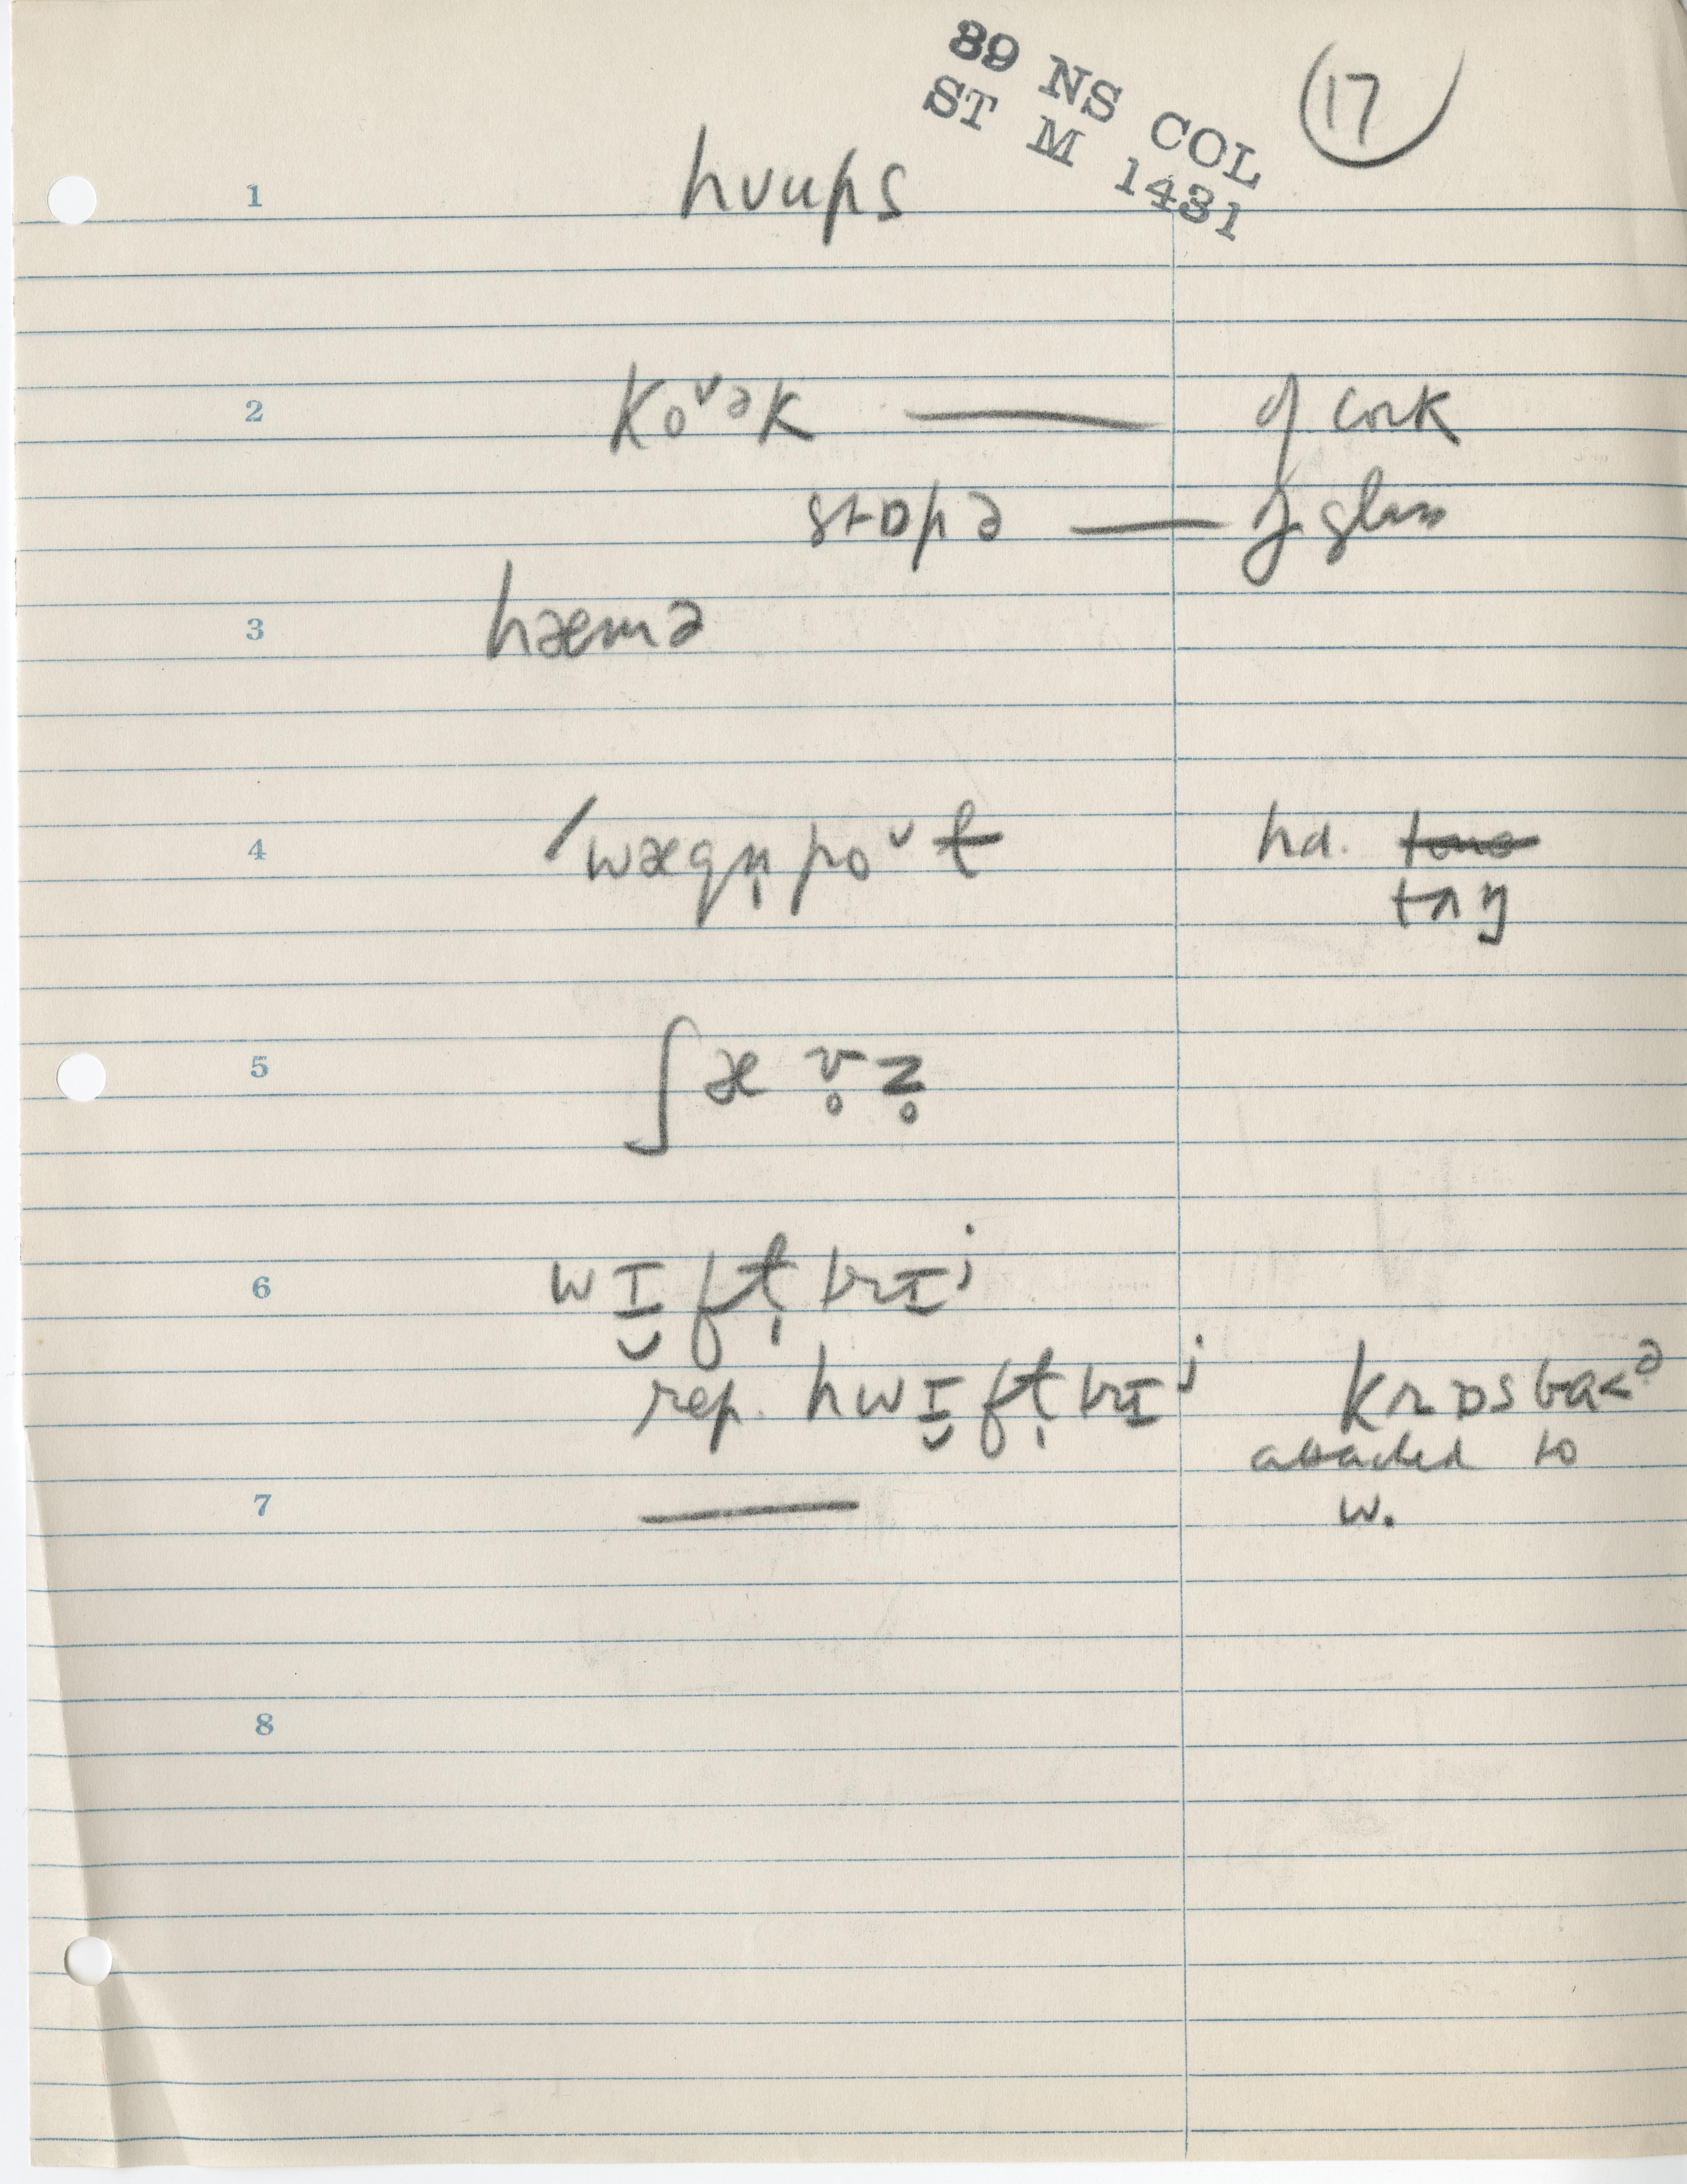 89 NS COL
ST M 1431
17
1 hvups
2 koᵛək — of cork
stɒpə — of glass
3 hæmə
4 ˈwægn̩poᵛt hd. tong
tʌŋ
5 ʃæv̥z̥
6 wɪ̮ft̩trɪʲ
rep. hwɪ̮ft̩trɪʲ krɒsba<ᵊ
attached to
7 — w.
8